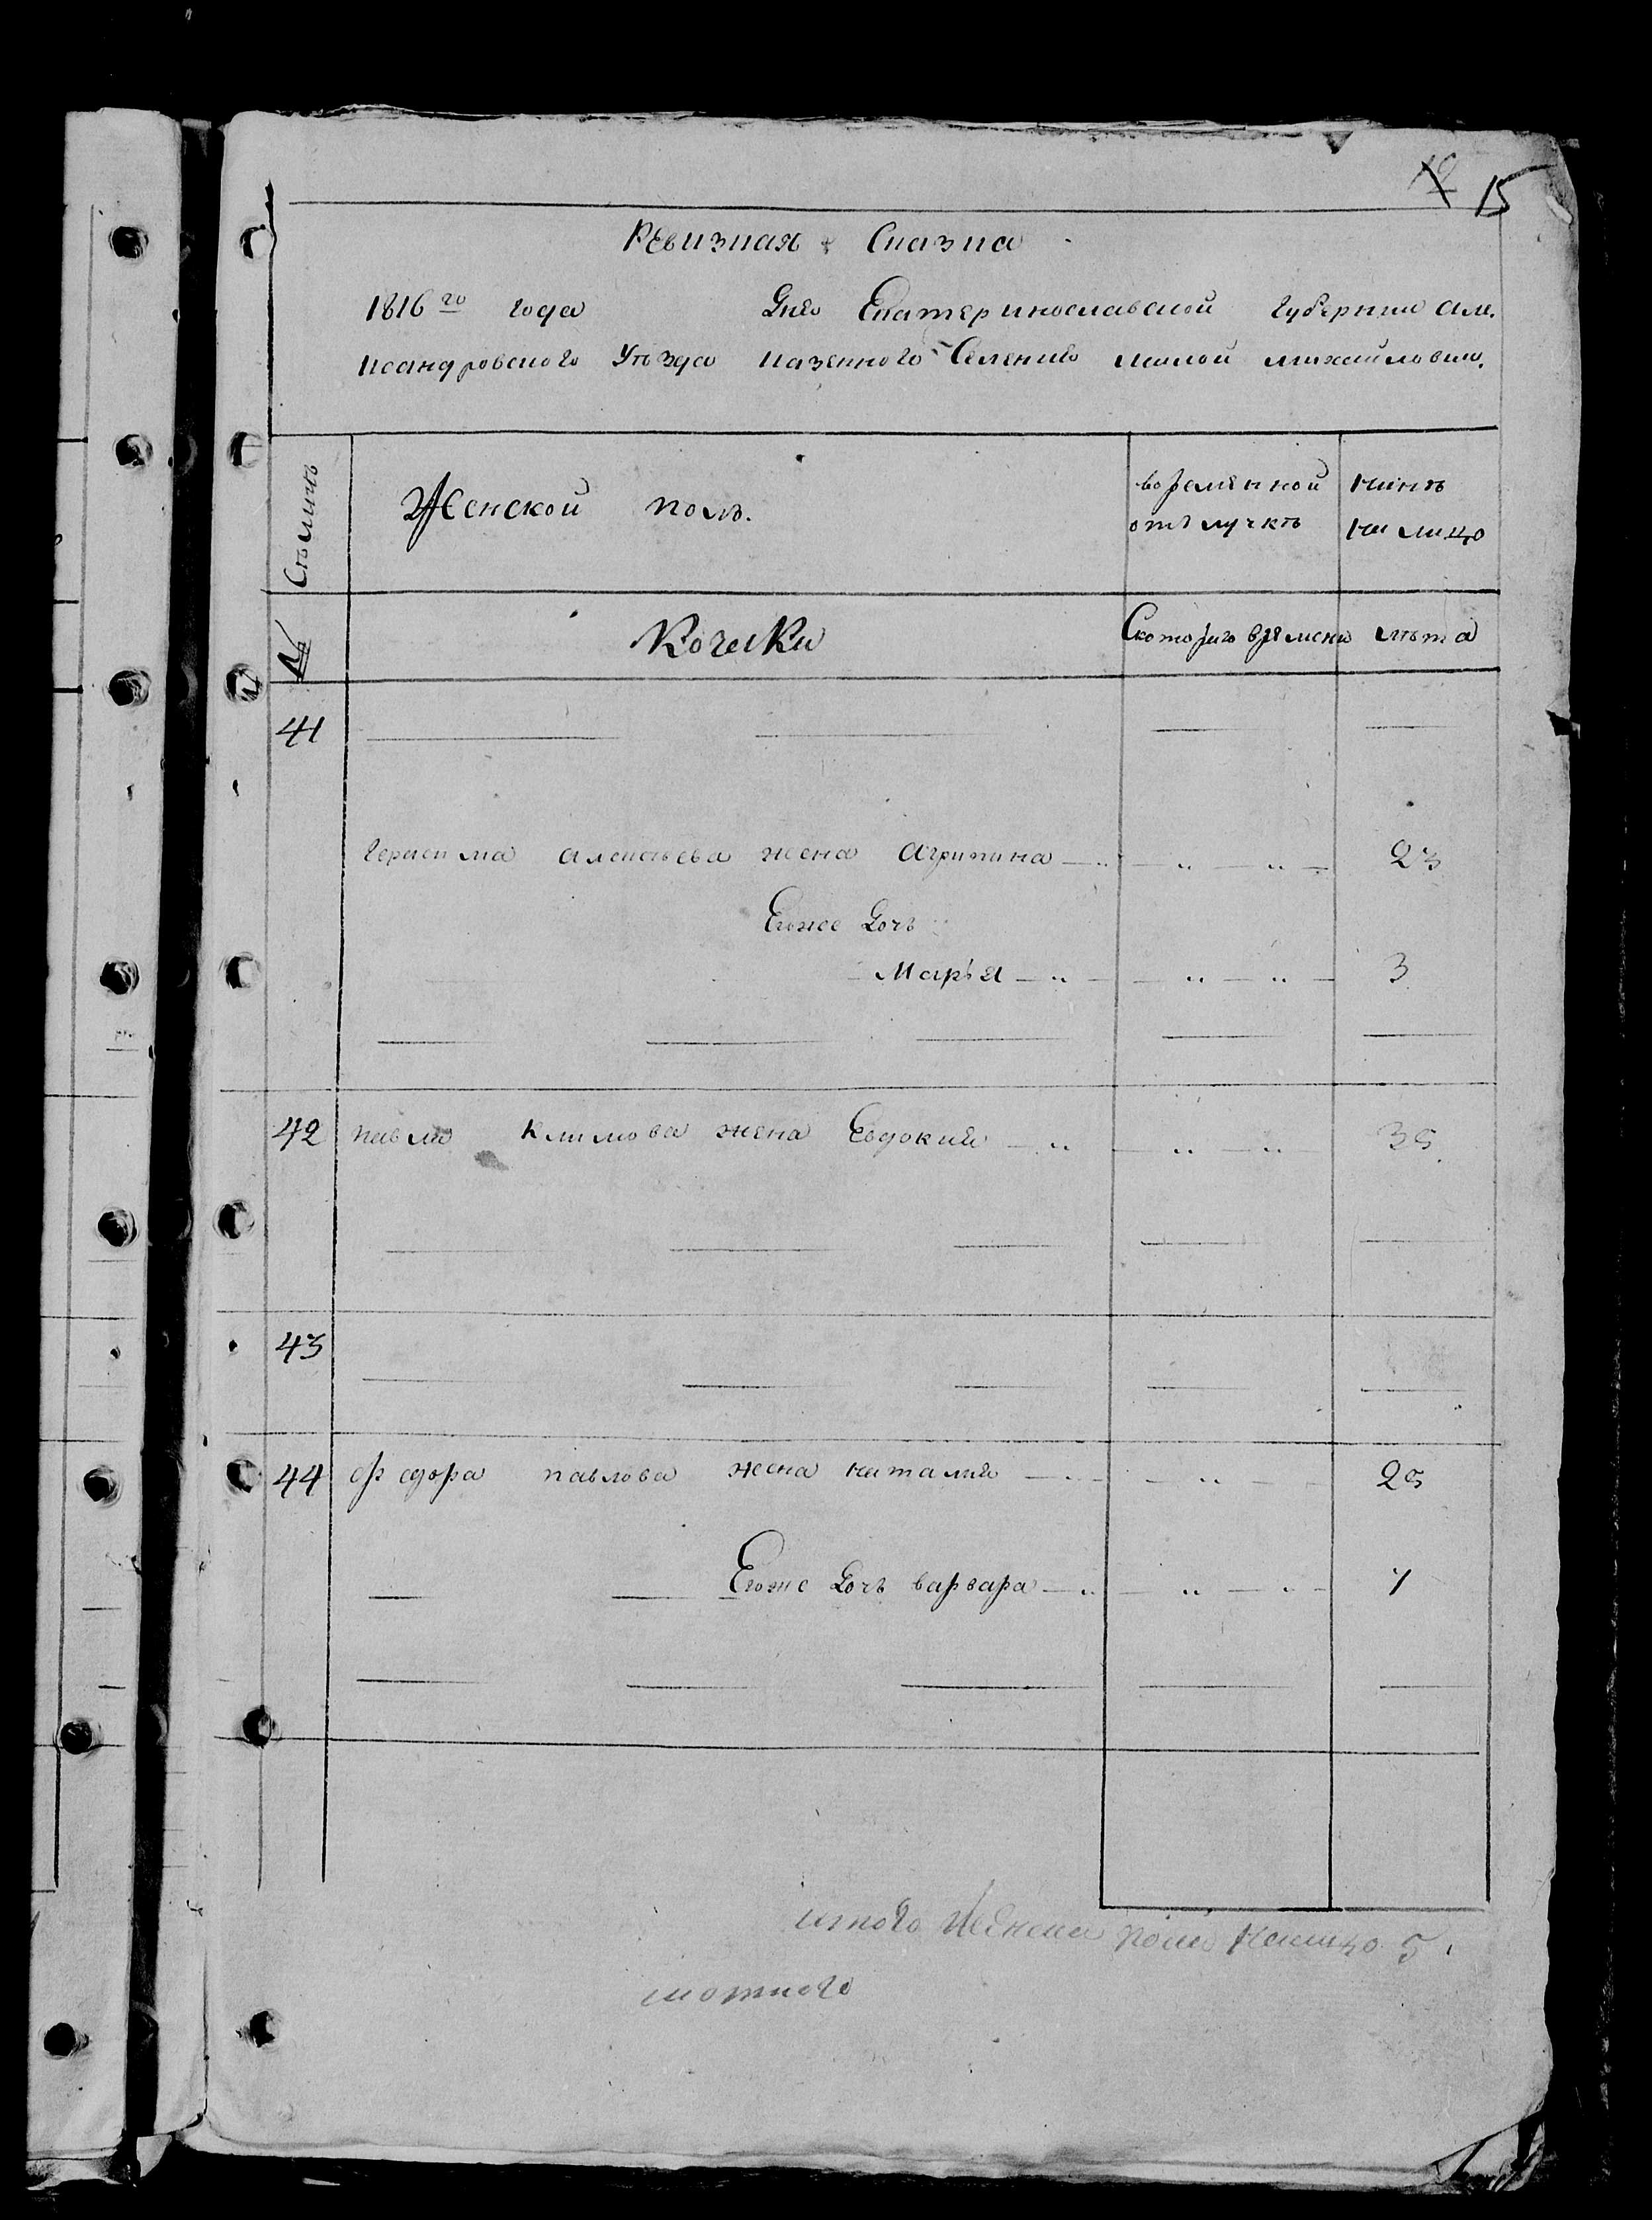 15
Ревизная Сказка
1816го года Дня Екатеринославской губернии але.
ксандровского Уѣзда казенного Селения малой михайловки.
Семьи
Женской полъ.
во временной
отлучкѣ
нынѣ
на лицо
№
Скоторого времени
лѣта
41
герасима алексѣева жена агрипина 23
Егоже дочь
Марья 3
42 павла климова жена Евдокия 35
43
44 федора павлова жена наталия 25
Егоже дочь варвара 7
итого женска пола налицо 5.